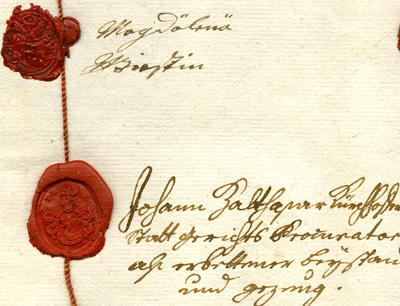 Magdalena
Wirstin
Johann Balthasar Kürchhofer
Statt Gerichts Procurator
alß erbettener beystan
und gezeüg.